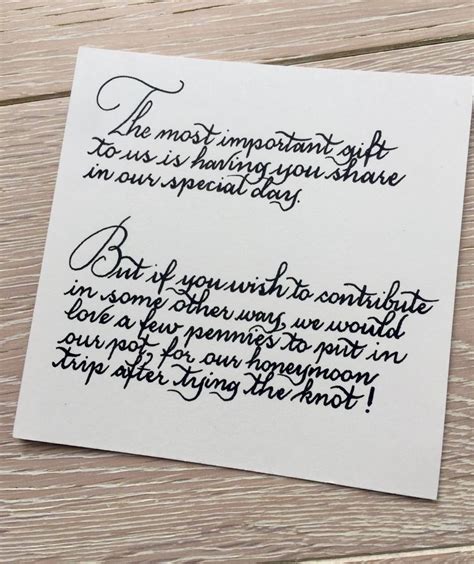 The most important gift
to us is having you share
in our special day.
But if you wish to contribute
in some other way, we would
love a few pennies to put in
our pot, for our honeymoon
trip after tying the knot!